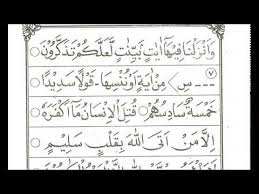 وَاَنْزَلْنَا فِيْهَآ اٰيٰتٍۢ بَيِّنٰتٍ لَّعَلَّكُمْ تَذَكَّرُوْنَ ○
٧
--- س> مِنْ اٰيَةٍ اَوْ نُنْسِهَا - قَوْلًا سَدِيْدًا
خَمْسَةٌ سَادِسُهُمْ ○ قُتِلَ الْاِنْسَانُ مَآ اَكْفَرَهٗ ○
اِلَّا مَنْ اَتَى اللّٰهَ بِقَلْبٍ سَلِيْمٍ